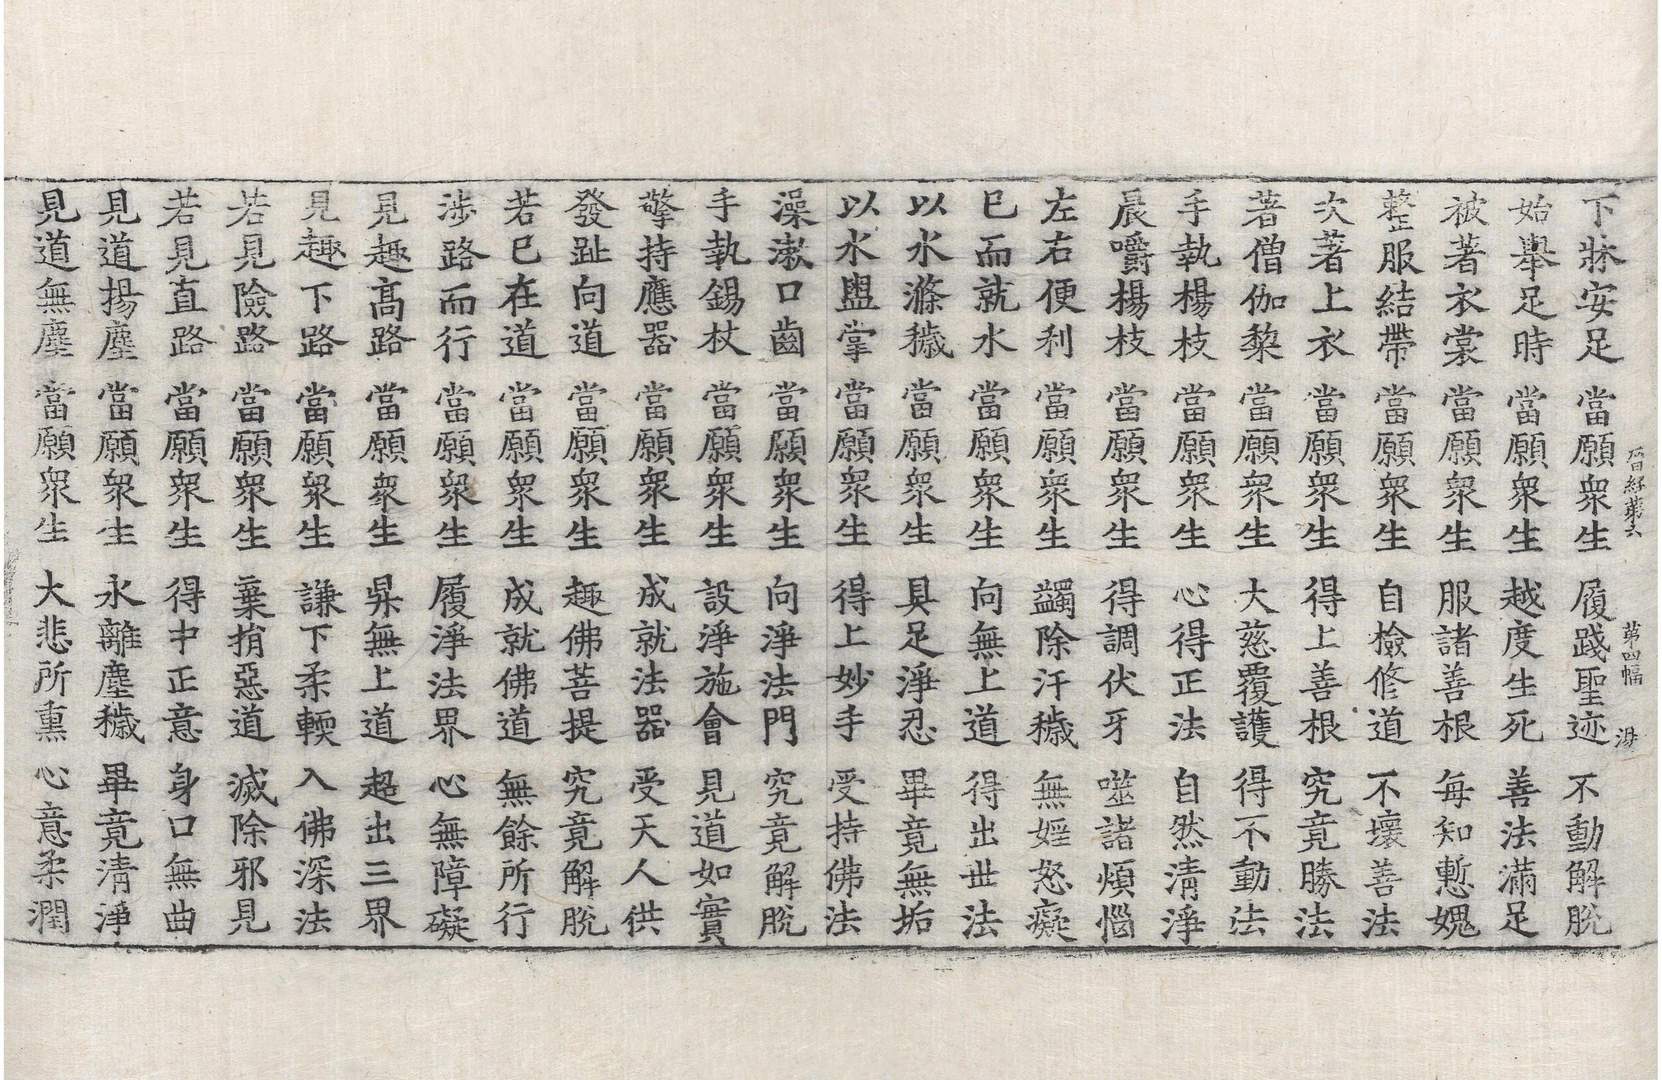 晉經第六 第四幅
下牀安足 當願衆生 履踐聖迹 不動解脫
始舉足時 當願衆生 越度生死 善法滿足
被著衣裳 當願衆生 服諸善根 每知慙愧
整服結帶 當願衆生 自檢修道 不壞善法
次著上衣 當願衆生 得上善根 究竟勝法
著僧伽棃 當願衆生 大慈覆護 得不動法
手執楊枝 當願衆生 心得正法 自然清淨
晨嚼楊枝 當願衆生 得調伏牙 噬諸煩惱
左右便利 當願衆生 蠲除汙穢 無婬怒癡
已而就水 當願衆生 向無上道 得出世法
以水滌穢 當願衆生 具足淨忍 畢竟無垢
以水盥掌 當願衆生 得上妙手 受持佛法
澡漱口齒 當願衆生 向淨法門 究竟解脫
手執錫杖 當願衆生 設淨施會 見道如實
擎持應器 當願衆生 成就法器 受天人供
發趾向道 當願衆生 趣佛菩提 究竟解脫
若已在道 當願衆生 成就佛道 無餘所行
涉路而行 當願衆生 履淨法界 心無障礙
見趣高路 當願衆生 昇無上道 超出三界
見趣下路 當願衆生 謙下柔輭 入佛深法
若見險路 當願衆生 棄捐惡道 滅除邪見
若見直路 當願衆生 得中正意 身口無曲
見道揚塵 當願衆生 永離塵穢 畢竟清淨
見道無塵 當願衆生 大悲所熏 心意柔潤